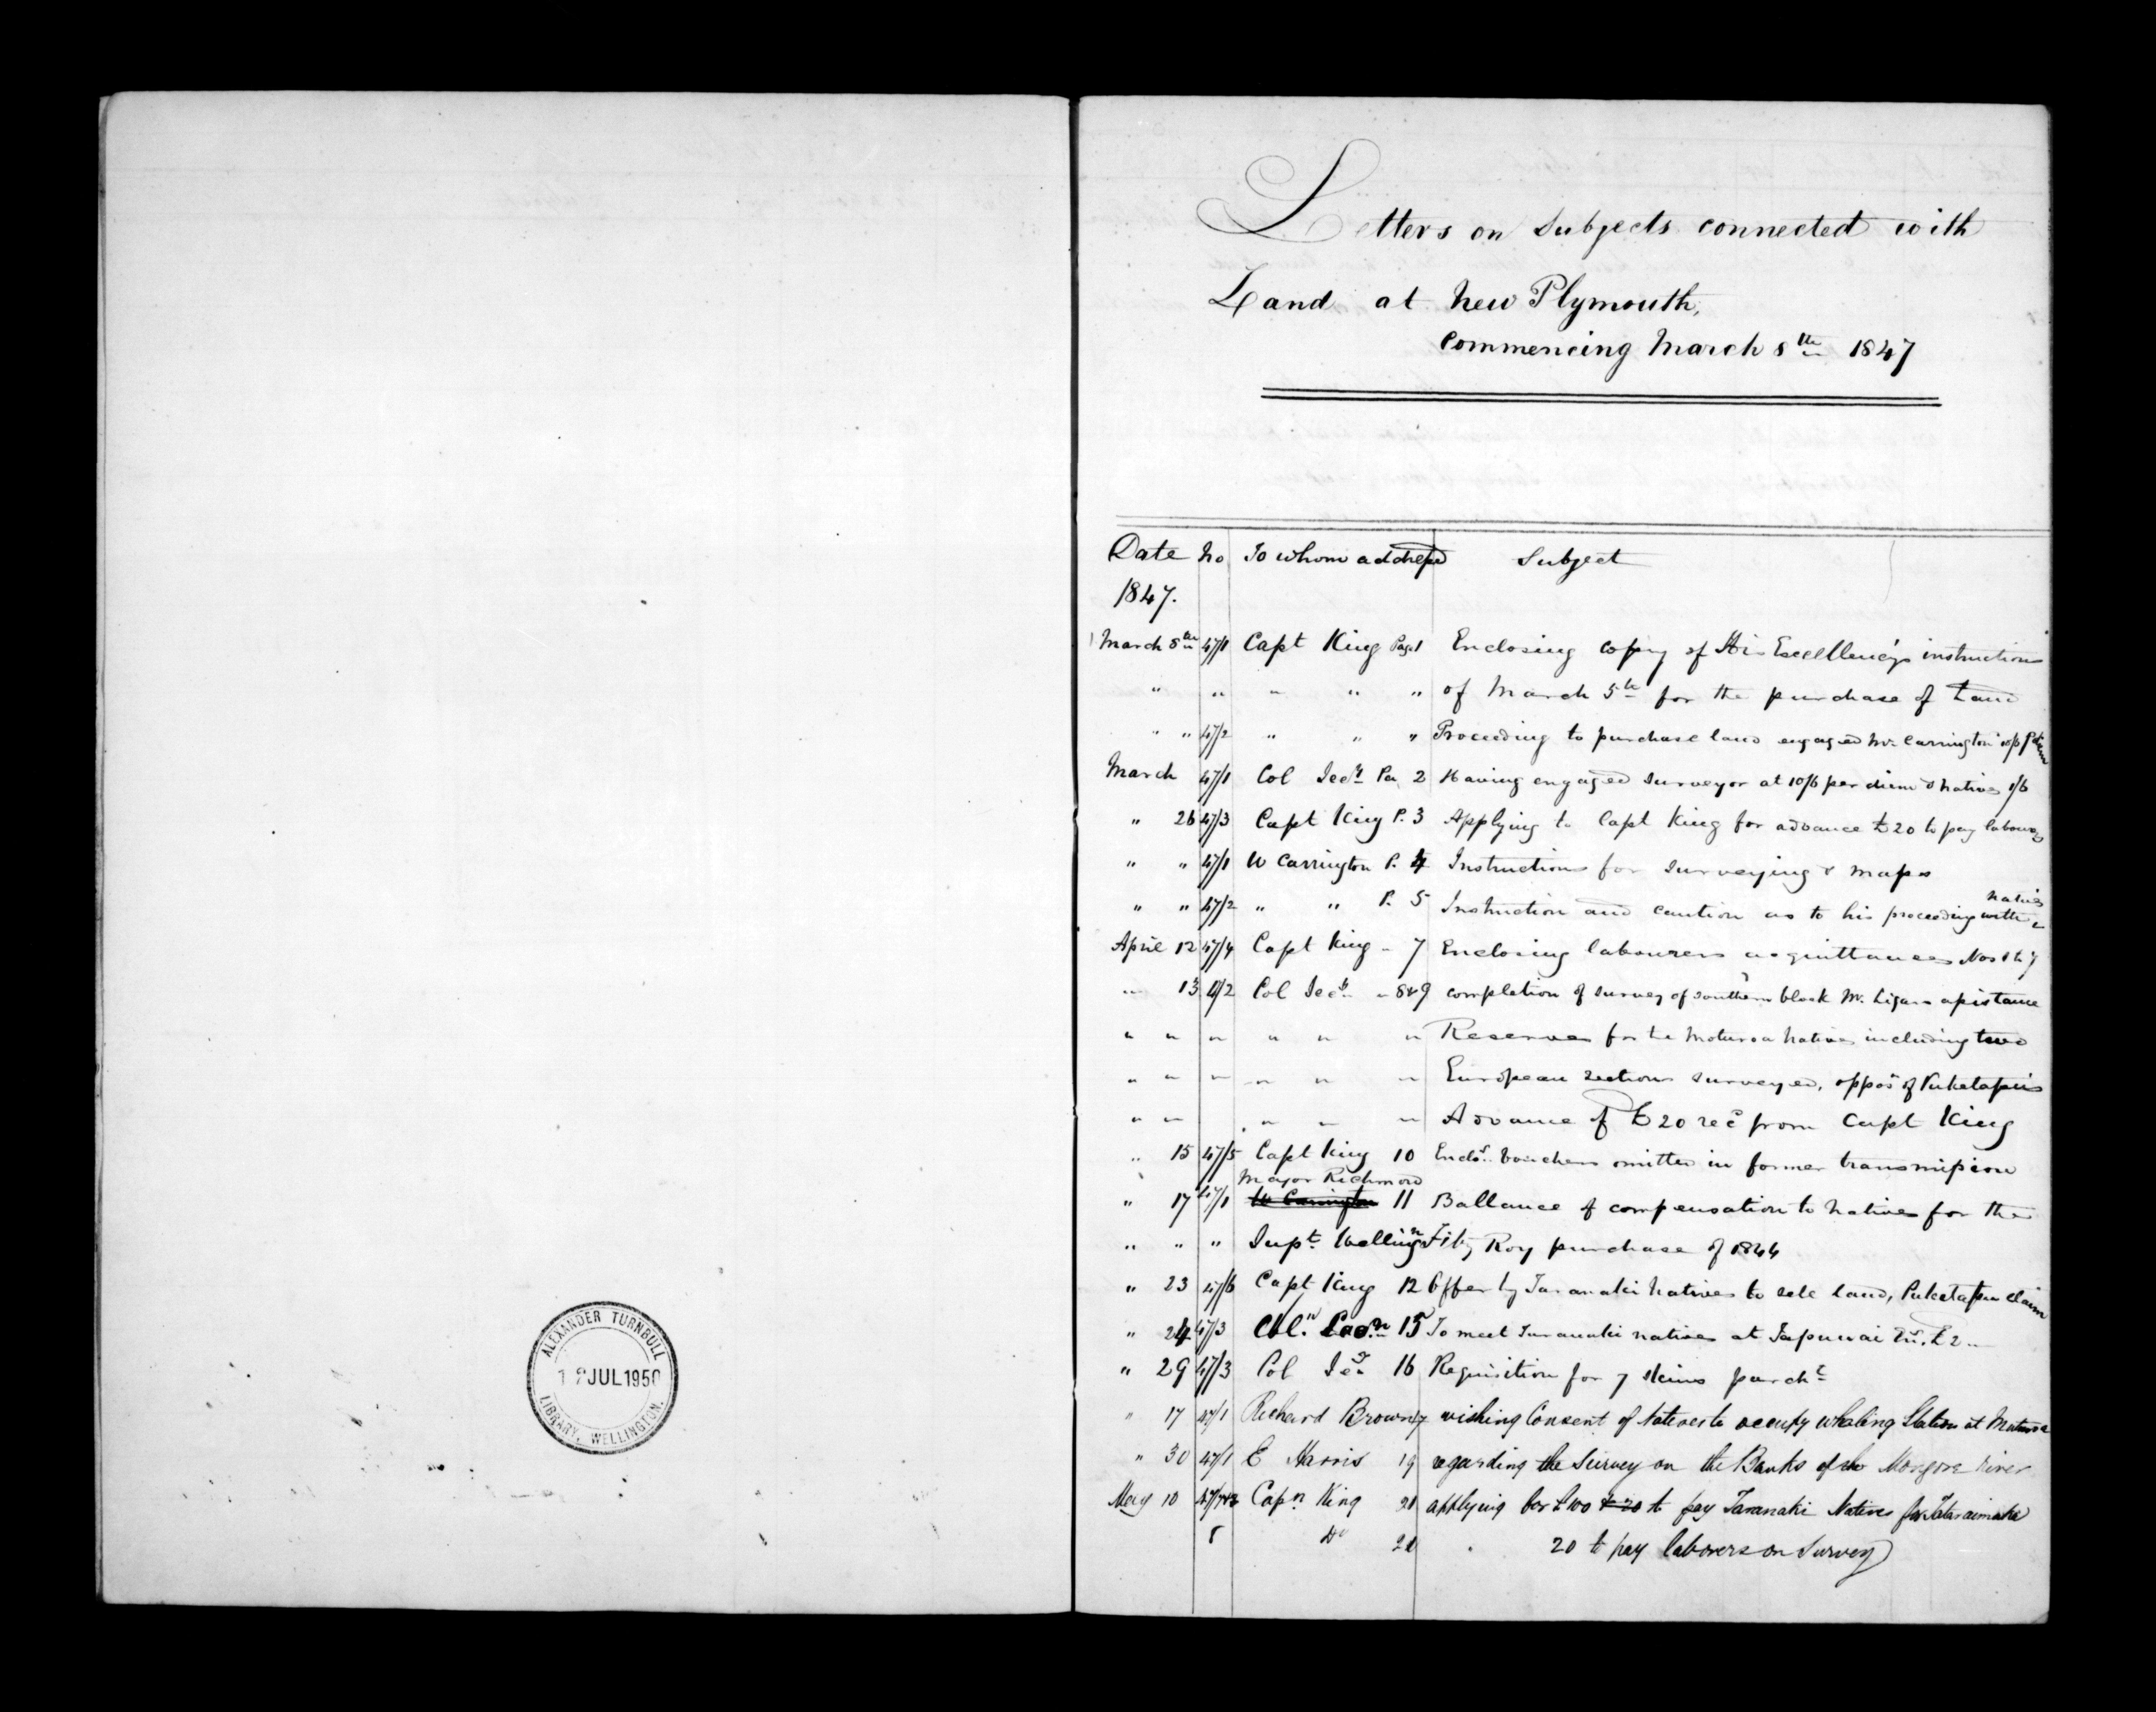 Letters on Subjects connected with
Land at New Plymouth,
commencing March 8th 1847
Date No To whom addressed Subject
1847.
March 8th 47/1 Capt King Page 1 Enclosing copy of His Excellency's instructions
" " " " " of March 5th for the purchase of Land
" " 47/2 " " " Proceeding to purchase land engaged Mr Carrington 10/6 P diem
March 47/1 Col Secy Pa 2 Having engaged surveyor at 10/6 per diem & natives 1/6
" 26 47/3 Capt King P. 3 Applying to Capt King for advance £20 to pay labourers
" " 47/1 W Carrington P. 4 Instructions for surveying & maps
" " 47/2 " " P. 5 Instruction and caution as to his proceeding with natives
April 12 47/4 Capt King " 7 Enclosing labourers acquittances Nos 1 to 7
" 13 47/2 Col Secy " 8&9 completion of survey of southern block Mr. Ligars assistance
" " " " " " Reserves for the Moturoa Natives including two
" " " " " " European sections surveyed, oppos of Puketapuis
" " " " " Advance of £20 rec from Capt King
" 15 47/5 Capt King 10 Endo. vouchers omitted in former transmission
Major Richmond
" 17 47/1 W Carrington 11 Ballance of compensation to natives for the
" " " Supt. Wellingn Fitz Roy purchase of 1844
" 23 47/6 Capt King 12 Offer by Taranaki Natives to sell land, Puketapu claim
" 24 47/3 15 To meet Taranaki natives at Tapuwai £2
" 29 47/3 Col Secy 16 Requisition for 7 skins parcht
" 17 47/1 Richard Brown 17 wishing Consent of Natives to occupy whaling Station at Moturoa
" 30 47/1 E Harris 19 regarding the Survey on the Banks of the River
May 10 47/7 Capn King 21 applying for £100 £20 to pay Taranaki Natives for Tataraimaka
8 Do 21 20 to pay laborers on Survey
ALEXANDER TURNBULL
JUL 1950
LIBRARY, WELLINGTON.